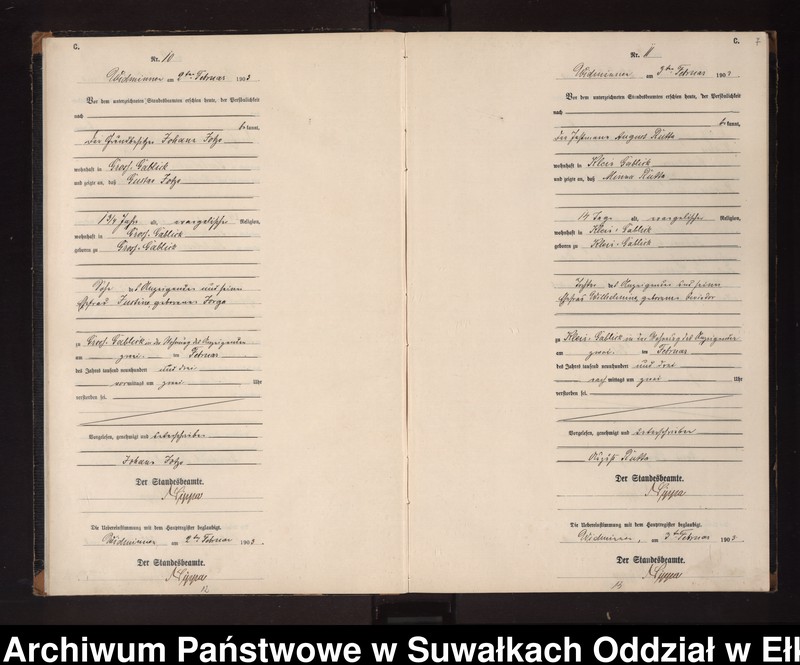 C.
Nr. 10
Widminnen am 2ten Februar 1903
Vor dem unterzeichneten Standesbeamten erschien heute, der Persönlichkeit
nach
bekannt,
der Johann
wohnhaft in Gross-Gablick
und zeigte an, daß Gustav
1 3/4 Jahr a. evangelischer Religion,
wohnhaft in Gross-Gablick
geboren zu Gross-Gablick
Sohn des Anzeigenden und seiner
Ehefrau Justine geborenen
zu Gross-Gablick in der Wohnung des Anzeigenden
am zwei ten Februar
des Jahres tausend neunhundert und drei
vormittags um zwei Uhr
verstorben sei.
Vorgelesen, genehmigt und unterschrieben
Johann
Der Standesbeamte.
Die Uebereinstimmung mit dem Hauptregister beglaubigt.
Widminnen am 2ten Februar 1903.
Der Standesbeamte.
C. 7
Nr. 11
Widminnen am 3ten Februar 1903
Vor dem unterzeichneten Standesbeamten erschien heute, der Persönlichkeit
nach
bekannt,
der August
wohnhaft in Klein Gablick
und zeigte an, daß Minna
14 Tage alt, evangelischer Religion,
wohnhaft in Klein-Gablick
geboren zu Klein-Gablick
Tochter des Anzeigenden und seiner
Ehefrau Wilhelmine geborenen
zu Klein-Gablick in der Wohnung des Anzeigenden
am zwei ten Februar
des Jahres tausend neunhundert und drei
nach mittags um zwei Uhr
verstorben sei.
Vorgelesen, genehmigt und unterschrieben
August
Der Standesbeamte.
Die Uebereinstimmung mit dem Hauptregister beglaubigt.
Widminnen, am 3ten Februar 1903
Der Standesbeamte.
Archiwum Państwowe w Suwałkach Oddział w Eł